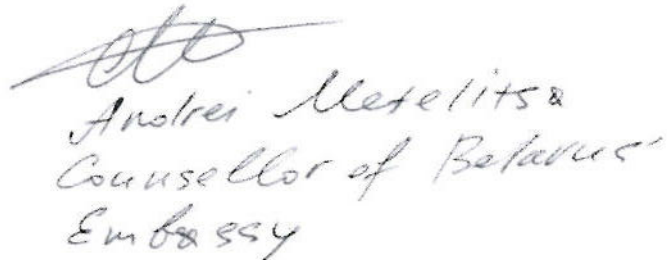 Andrei Metelitsa
Counsellor of Belarus'
Embassy